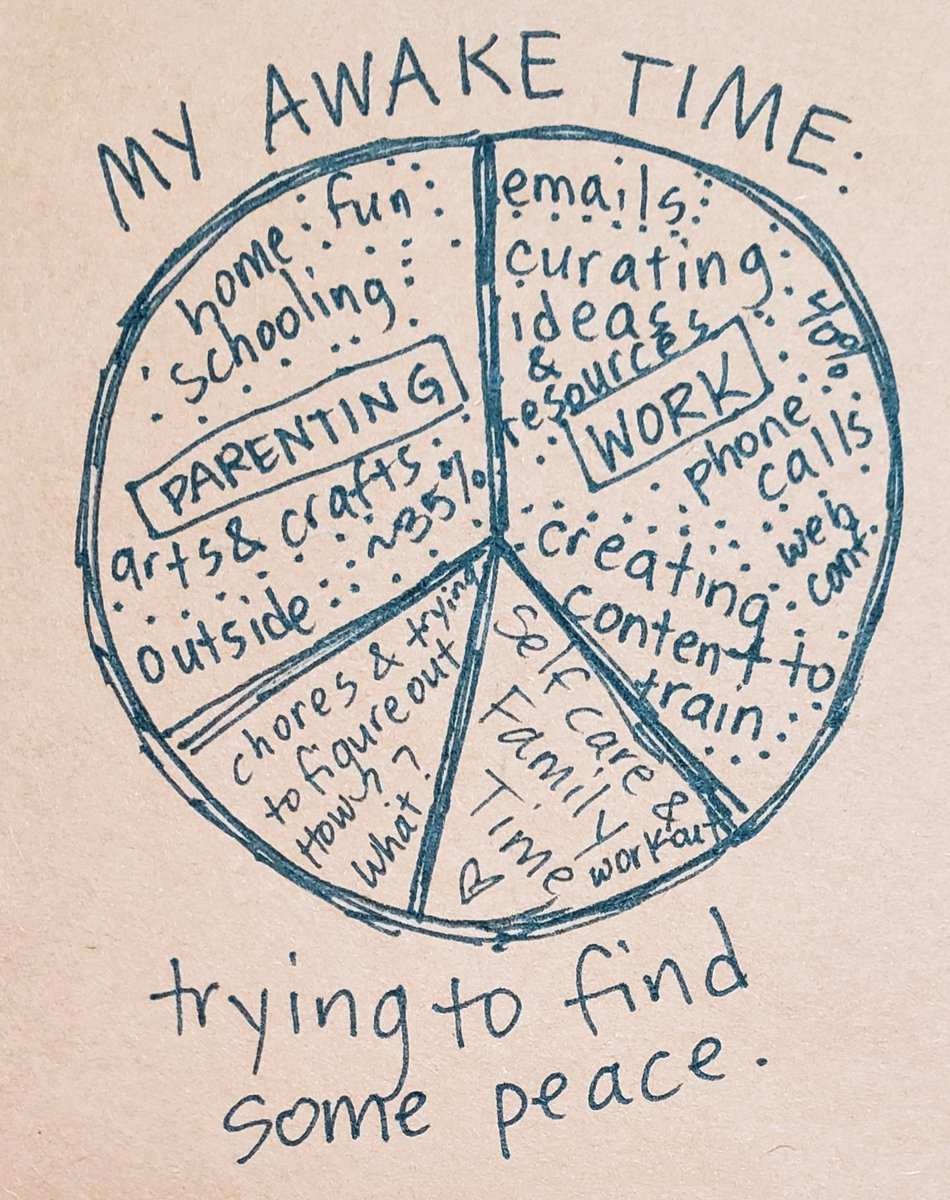 MY AWAKE TIME:
home fun
schooling
PARENTING
arts & crafts
~35%
outside
emails
curating
ideas
&
resources
40%
WORK
phone
calls
web
cont.
creating
content to
train
chores & trying
to figure out
How?
what?
self care &
Family
Time
workout
trying to find
some peace.